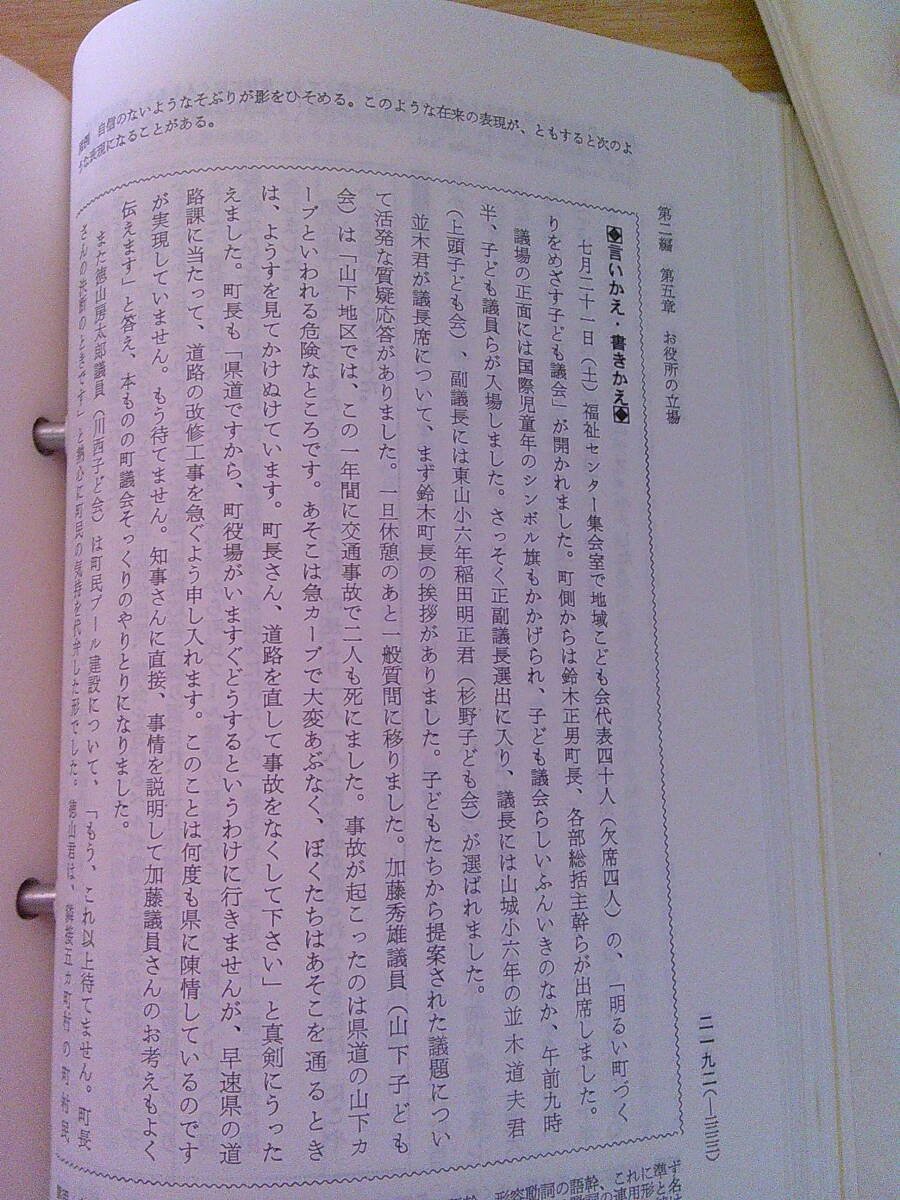 第二編　第五章　お役所の立場
二―九二(―三三)
◆言いかえ・書きかえ◆
七月二十一日（土）福祉センター集会室で地域こども会代表四十人（欠席四人）の、「明るい町づく
りをめざす子ども議会」が開かれました。町側からは鈴木正男町長、各部総括主幹らが出席しました。
議場の正面には国際児童年のシンボル旗もかかげられ、子ども議会らしいふんいきのなか、午前九時
半、子ども議員らが入場しました。さっそく正副議長選出に入り、議長には山城小六年の並木道夫君
（上頭子ども会）、副議長には東山小六年稲田明正君（杉野子ども会）が選ばれました。
並木君が議長席について、まず鈴木町長の挨拶がありました。子どもたちから提案された議題につい
て活発な質疑応答がありました。一旦休憩のあと一般質問に移りました。加藤秀雄議員（山下子ども
会）は「山下地区では、この一年間に交通事故で二人も死にました。事故が起こったのは県道の山下カ
ーブといわれる危険なところです。あそこは急カーブで大変あぶなく、ぼくたちはあそこを通るとき
は、ようすを見てかけぬけています。町長さん、道路を直して事故をなくして下さい」と真剣にうった
えました。町長も「県道ですから、町役場がいますぐどうするというわけに行きませんが、早速県の道
路課に当たって、道路の改修工事を急ぐよう申し入れます。このことは何度も県に陳情しているのです
が実現していません。もう待てません。知事さんに直接、事情を説明して加藤議員さんのお考えもよく
伝えます」と答え、本ものの町議会そっくりのやりとりになりました。
また徳山房太郎議員（川西子ども会）は町民プール建設について、「もう、これ以上待てません。町長
さんの決断のときです」と熱心に町民の気持を代弁した形でした。徳山君は、隣接五ヵ町村の町村民
自信のないようなそぶりが影をひそめる。このような在来の表現が、ともすると次のよ
うな表現になることがある。